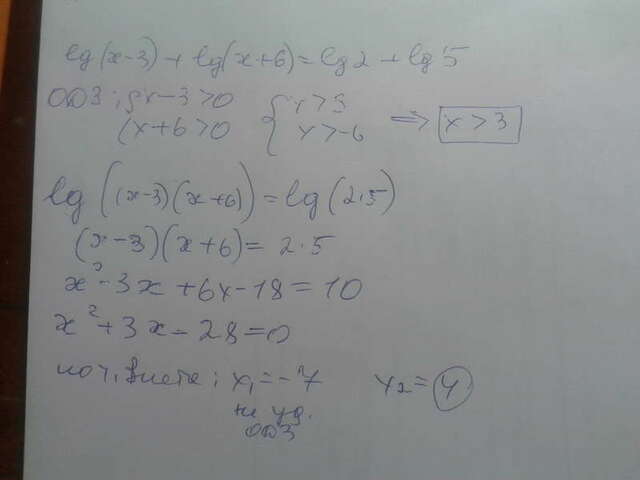 lg(x-3)+lg(x+6)=lg2+lg5
ОДЗ: {x-3>0 {x>3
{x+6>0 {x>-6 => x>3
lg((x-3)(x+6))=lg(2·5)
(x-3)(x+6)=2·5
x²-3x+6x-18=10
x²+3x-28=0
по т. Виета: x₁=-7 x₂=4
не уд.
ОДЗ